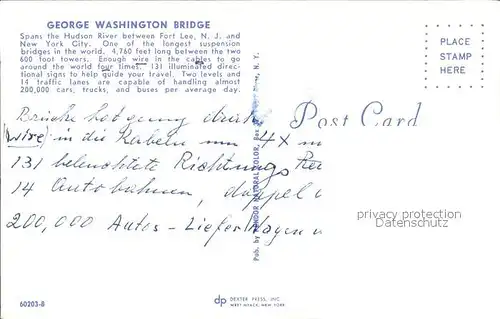 GEORGE WASHINGTON BRIDGE
Spans the Hudson River between Fort Lee, N. J. and
New York City. One of the longest suspension
bridges in the world. 4,760 feet long between the two
600 foot towers. Enough wire in the cables to go
around the world four times. 131 illuminated direc-
tional signs to help guide your travel. Two levels and
14 traffic lanes are capable of handling almost
200,000 cars, trucks, and buses per average day.
PLACE
STAMP
HERE
Post Card
Brücke hat genug
(wire) in die Kabeln um 4 x
131 beleuchtete Richtungs
14 Autobahnen, doppel
200,000 Autos - Liefer Wagen u
Pub. by COLOR, N. Y.
privacy protection
Datenschutz
60203-B
dp DEXTER PRESS, INC.
WEST NYACK, NEW YORK